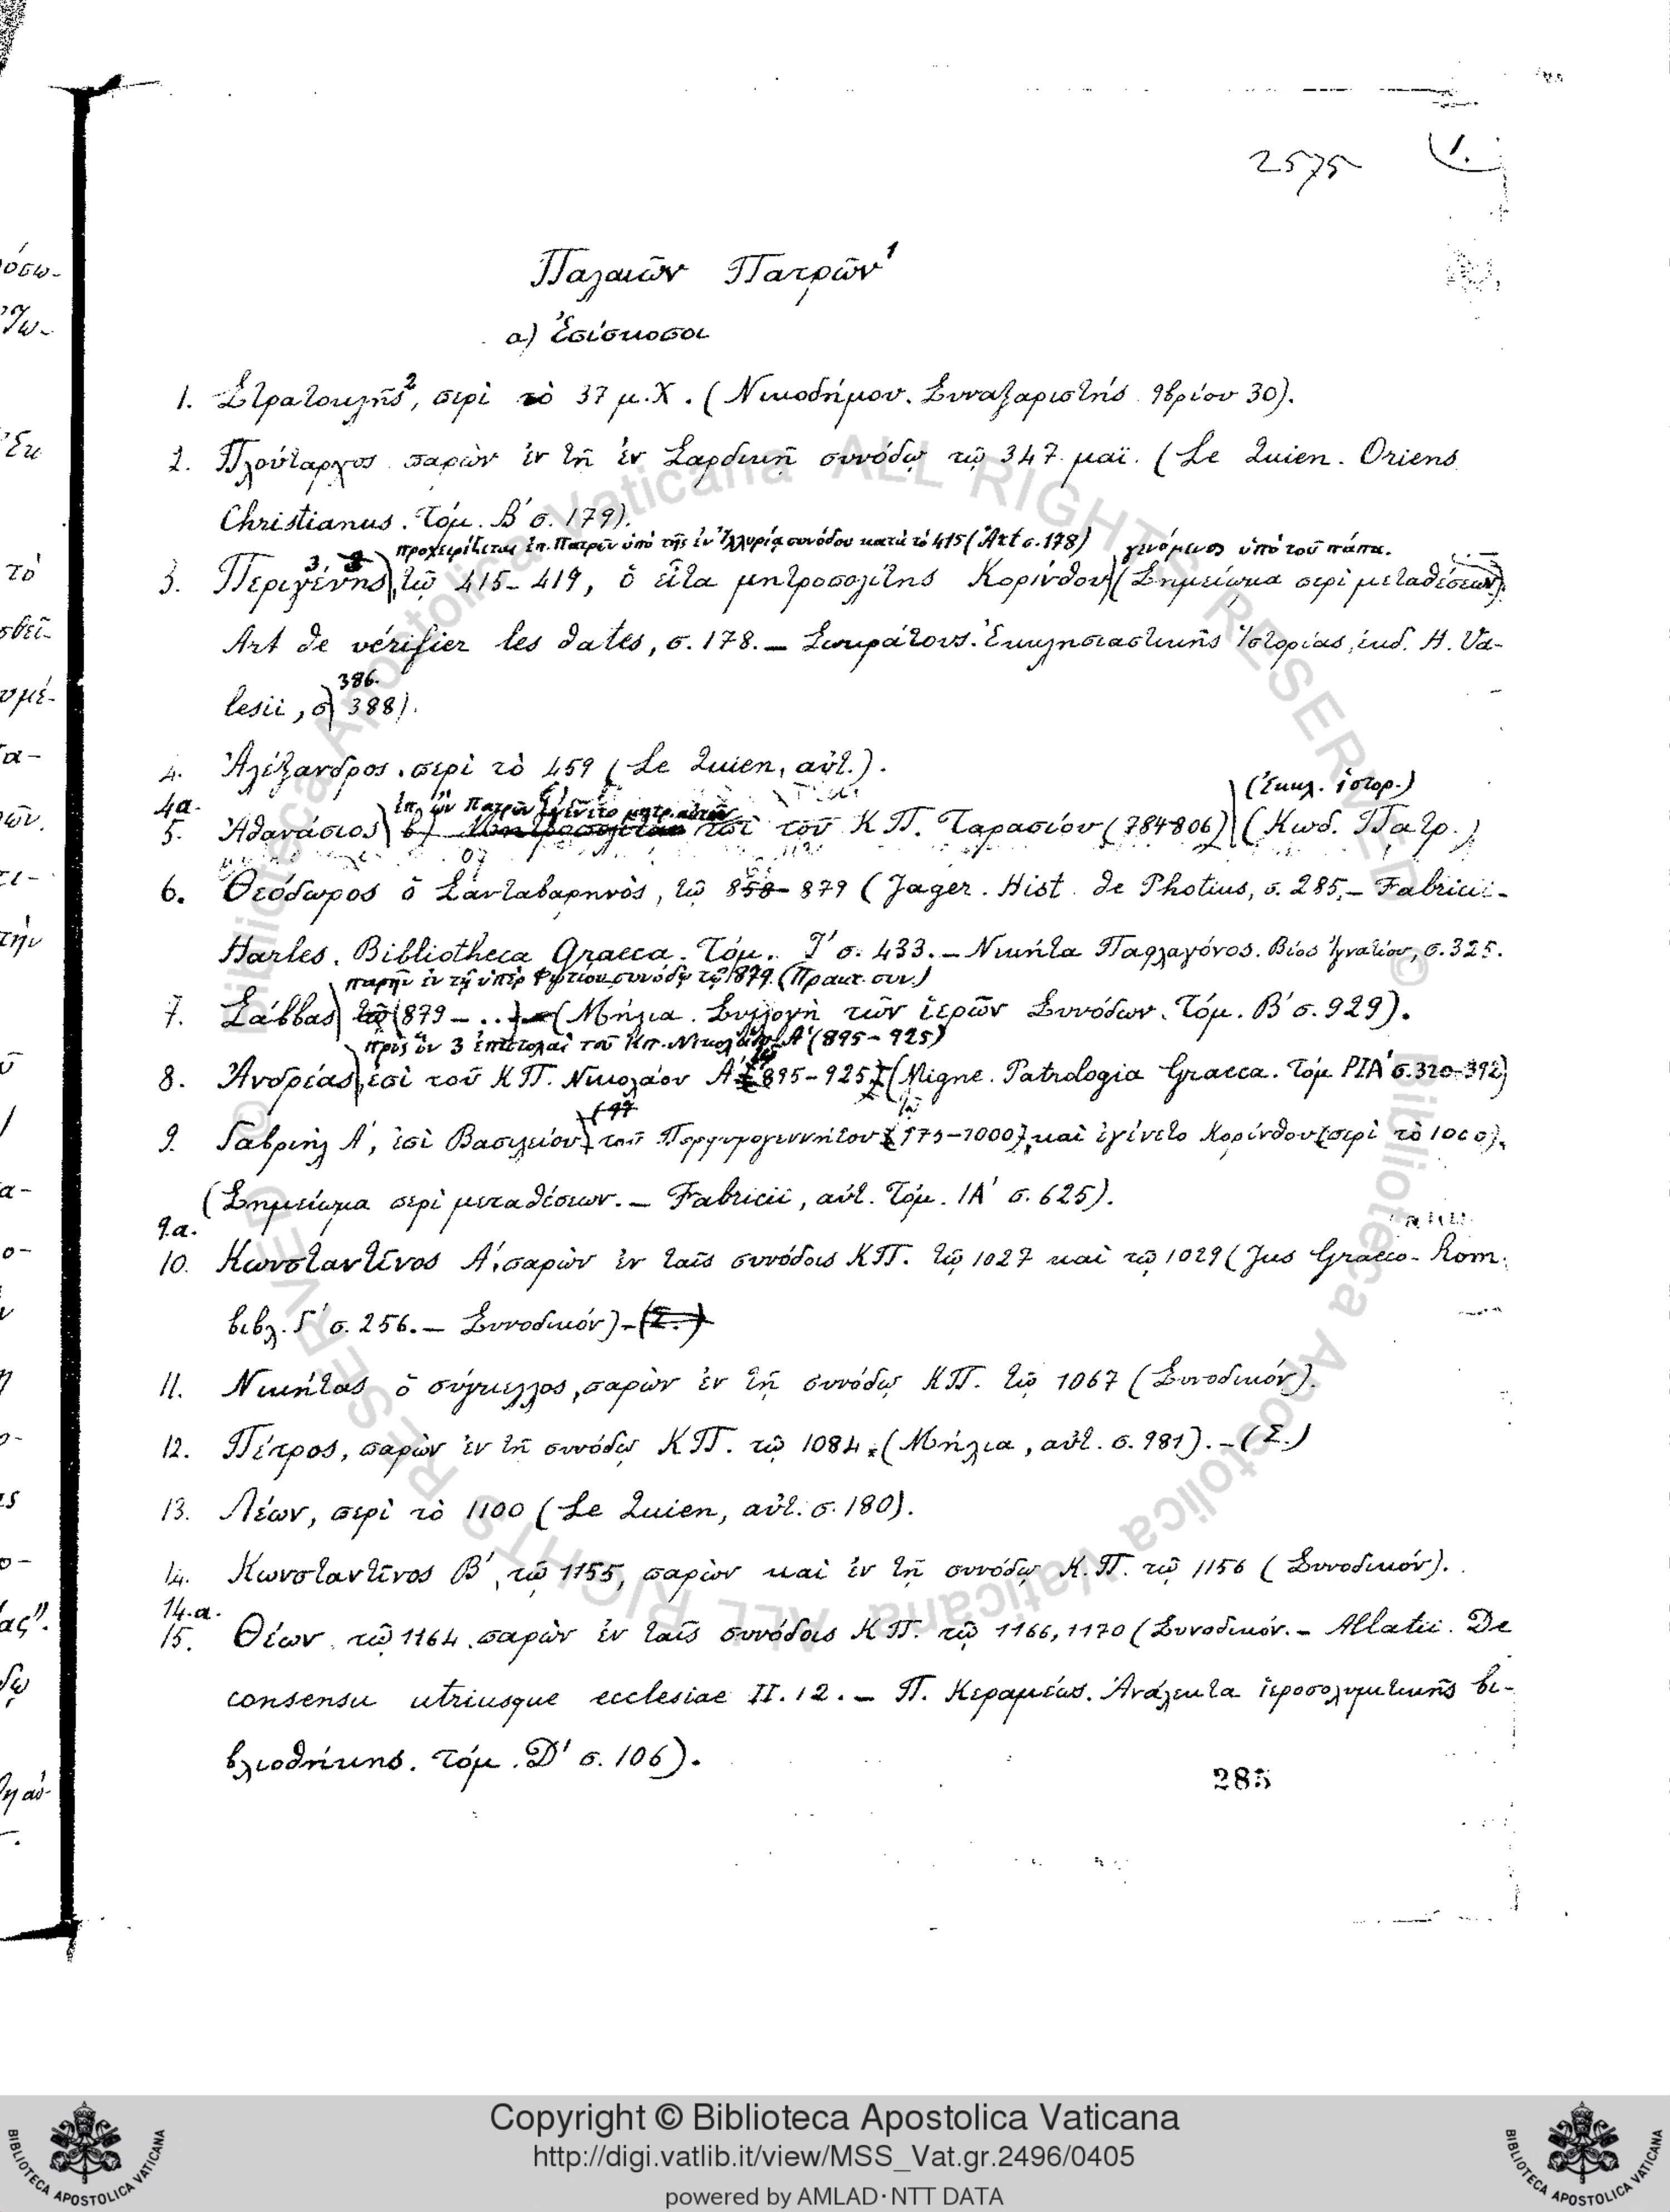 2575 1.
Παλαιῶν Πατρῶν¹
α) Ἐπίσκοποι
1. Στρατοκλῆς², περὶ τὸ 37 μ.Χ. (Νικοδήμου. Συναξαριστής 9βρίου 30).
2. Πλούταρχος παρὼν ἐν τῇ ἐν Σαρδικῇ συνόδῳ τῷ 347 μαΐ. (Le Quien. Oriens
Christianus. Τόμ. Β΄ σ. 179).
προχειρίζεται ἐπ. Πατρῶν ὑπὸ τῆς ἐν Ἰλλυρίᾳ συνόδου κατὰ τὸ 415 (Art σ. 178) γενόμενος ὑπὸ τοῦ πάπα.
3. Περιγένης 3 τῷ 415-419, ὁ εἶτα μητροπολίτης Κορίνθου (Σημείωμα περὶ μεταθέσεων)
Art de vérifier les dates, σ. 178. – Σωκράτους. Ἐκκλησιαστικῆς Ἱστορίας, ἐκδ. H. Va-
386.
lesii, σ 388).
4. Ἀλέξανδρος. περὶ τὸ 459 (Le Quien, αὐτ.).
4α. (Ἐκκλ. ἱστορ.)
5. Ἀθανάσιος ἐπὶ τοῦ ΚΠ. Ταρασίου (784-806) (Κωδ. Πατρ.)
6. Θεόδωρος ὁ Σανταβαρηνὸς, τῷ 858-879 (Jager. Hist. de Photius, σ. 285. – Fabricii-
Harles. Bibliotheca Graeca. Τόμ. Ι΄ σ. 433. – Νικήτα Παφλαγόνος. Βίος Ἰγνατίου, σ. 325.
παρῆν ἐν τῇ ὑπὲρ Φωτίου συνόδῳ τῷ 1879. (Πρακτ. συν.)
7. Σάββας τῷ (879 – ..) – (Μήλια. Συλλογὴ τῶν ἱερῶν Συνόδων. Τόμ. Β΄ σ. 929).
πρὸς ὃν 3 ἐπιστολαὶ τοῦ Κπ. Νικολάου Α΄ (895-925)
8. Ἀνδρέας, ἐπὶ τοῦ ΚΠ. Νικολάου Α΄ 895-925 (Migne. Patrologia Graeca. Τόμ ΡΙΑ΄ σ. 320-392)
9. Γαβριὴλ Α΄, ἐπὶ Βασιλείου τοῦ Πορφυρογεννήτου (975-1000), καὶ ἐγένετο Κορίνθου (περὶ τὸ 1000),
(Σημείωμα περὶ μεταθέσεων. – Fabricii, αὐτ. Τόμ. ΙΑ΄ σ. 625).
9.α.
10. Κωνσταντῖνος Α΄, παρὼν ἐν ταῖς συνόδοις ΚΠ. τῷ 1027 καὶ τῷ 1029 (Jus Graeco-Rom.
βιβλ. Γ΄ σ. 256. – Συνοδικόν) – (Σ.)
11. Νικήτας ὁ σύγκελλος, παρὼν ἐν τῇ συνόδῳ ΚΠ. τῷ 1067 (Συνοδικόν).
12. Πέτρος, παρὼν ἐν τῇ συνόδῳ ΚΠ. τῷ 1084. (Μήλια, αὐτ. σ. 981). – (Σ.)
13. Λέων, περὶ τὸ 1100 (Le Quien, αὐτ. σ. 180).
14. Κωνσταντῖνος Β΄, τῷ 1155, παρὼν καὶ ἐν τῇ συνόδῳ Κ.Π. τῷ 1156 (Συνοδικόν).
14.α.
15. Θέων τῷ 1164 παρὼν ἐν ταῖς συνόδοις ΚΠ. τῷ 1166, 1170 (Συνοδικόν. – Allatii. De
consensu utriusque ecclesiae II. 12. – Π. Κεραμέως. Ἀνάλεκτα ἱεροσολυμιτικῆς βι-
βλιοθήκης. τόμ. Δ΄ σ. 106).
285
Copyright © Biblioteca Apostolica Vaticana
http://digi.vatlib.it/view/MSS_Vat.gr.2496/0405
powered by AMLAD·NTT DATA
BIBLIOTECA APOSTOLICA VATICANA
BIBLIOTECA APOSTOLICA VATICANA